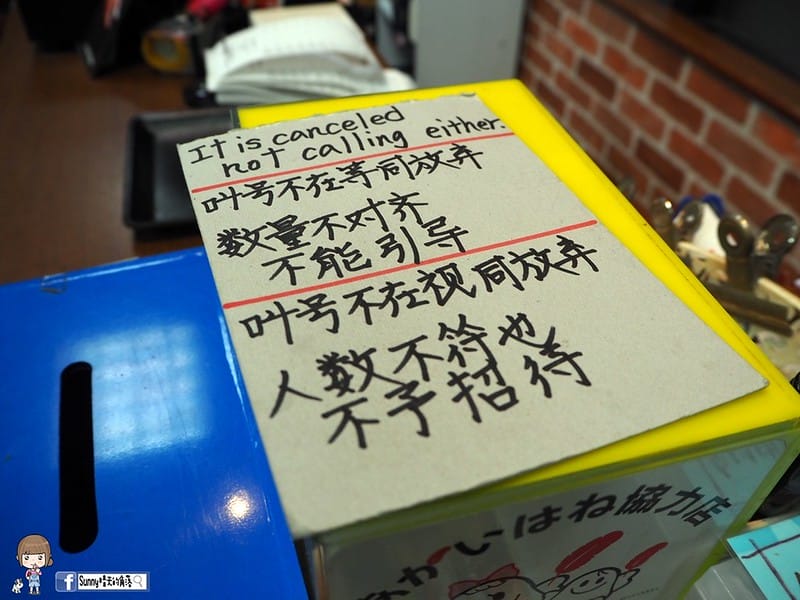 It is canceled
not calling either.
叫号不在等同放弃
数量不对齐
不能引导
叫号不在视同放弃
人数不符也
不予招待
あかいはね協力店